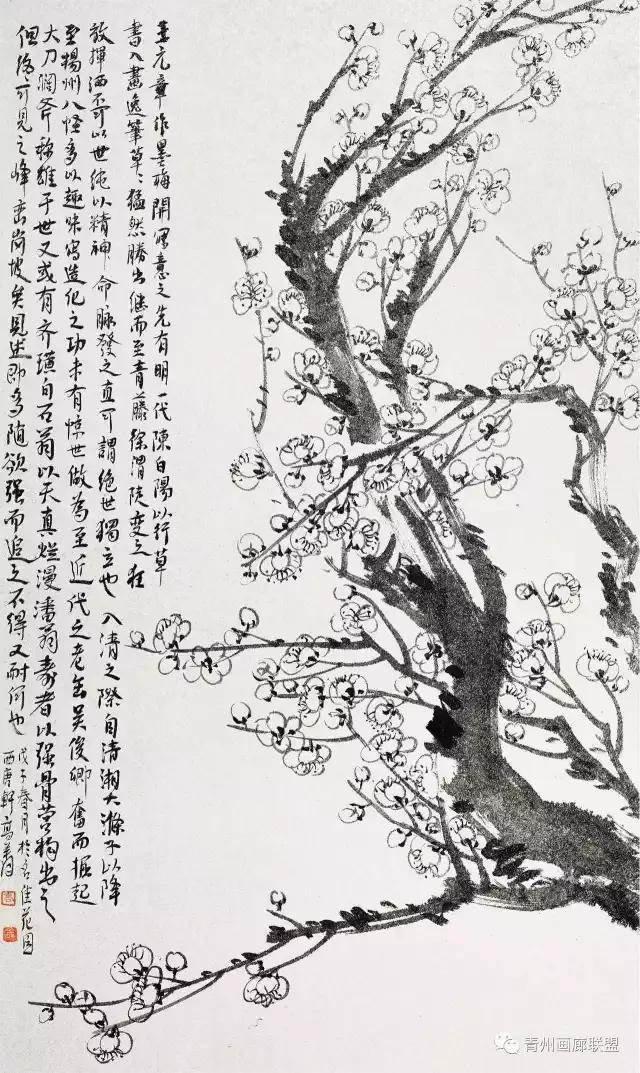 王元章作墨梅開寫意之先有明一代陳白陽以行草
書入畫逸筆草草猛然勝出繼而至青藤徐渭陡變之狂
放揮洒不可以世繩以精神命脉發之直可謂絕世獨立也入清之際自清湘大滌子以降
至揚州八怪多以趣味寫造化之功未有惊世做為至近代之老缶吴俊卿奮而掘起
大刀闊斧称雄于世又或有齐璜白石翁以天真烂漫潘翁寿者以强骨营构出之
但終可見之峰峦崗坡矣思述即多隨欲强而追之不得又耐何也
戊子春月於吾佳苑園
西唐軒高
青州画廊联盟